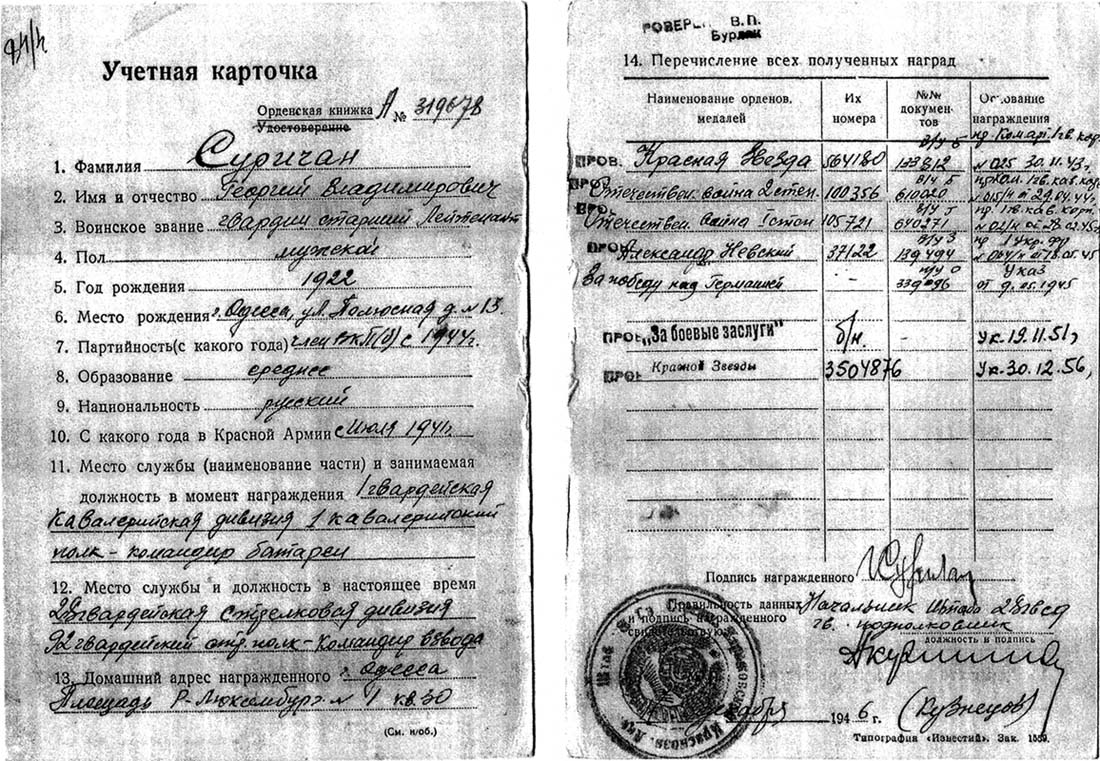 Учетная карточка
Орденская книжка А № 319678
Удостоверение
1. Фамилия Суричан
2. Имя и отчество Георгий Владимирович
3. Воинское звание гвардии старший Лейтенант
4. Пол мужской
5. Год рождения 1922
6. Место рождения г. Одесса, ул. Полюсная д. № 13.
7. Партийность(с какого года) член ВКП(б) с 1944г.
8. Образование среднее
9. Национальность русский
10. С какого года в Красной Армии с Июля 1941г.
11. Место службы (наименование части) и занимаемая
должность в момент награждения 1 гвардейская
кавалерийская дивизия 1 кавалерийский
полк - командир батареи
12. Место службы и должность в настоящее время
28гвардейская стрелковая дивизия
92 гвардейский стр. полк - командир взвода
13. Домашний адрес награжденного г. Одесса
Площадь Р-Люксембург № 1 кв. 30
(См. н/об.)
В.П.
Бурлак
14. Перечисление всех полученных наград
Наименование орденов, медалей Их номера №№ документов Основание награждения
ПРОВ. Красная Звезда 564180 133812 №025 30.11.43г.
Отечествен. война 2 степ. 100356 610020
Отечествен. Война 105721 640271
Александр Невский 37122 139494
За победу над Германией - Указ
от 9.05.1945
„За боевые заслуги" б/н. - Ук. 19.11.51г,
Красной Звезды 3504876 Ук. 30.12.56,
Подпись награжденного
Правильность данных и подпись награжденного свидетельствую: Начальник Штаба 28гвсд
гв. подполковник
должность и подпись
1946 г. (Кузнецов)
Типография «Известий». Зак. 1559.